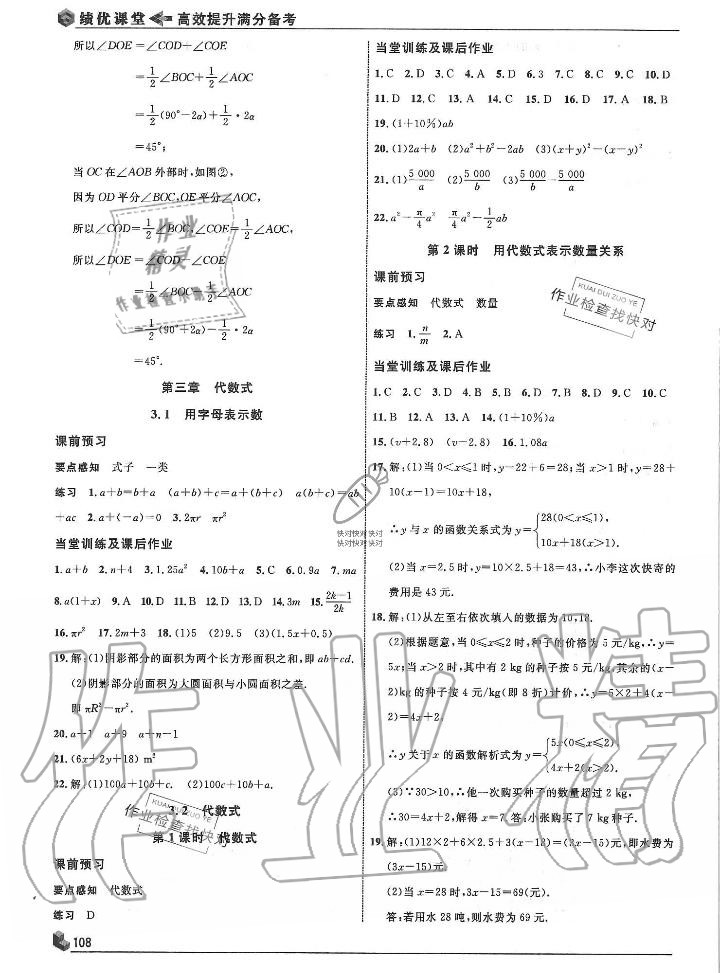 绩优课堂 高效提升满分备考
所以∠DOE=∠COD+∠COE
=1/2∠BOC+1/2∠AOC
=1/2(90°-2α)+1/2·2α
=45°;
当OC在∠AOB外部时,如图②,
因为OD平分∠BOC,OE平分∠AOC,
所以∠COD=1/2∠BOC,∠COE=1/2∠AOC,
所以∠DOE=∠COD-∠COE
=1/2∠BOC-1/2∠AOC
=1/2(90°+2α)-1/2·2α
=45°.
第三章 代数式
3.1 用字母表示数
课前预习
要点感知 式子 一类
练习 1.a+b=b+a (a+b)+c=a+(b+c) a(b+c)=ab
+ac 2.a+(-a)=0 3.2πr πr²
当堂训练及课后作业
1.a+b 2.n+4 3.1.25a² 4.10b+a 5.C 6.0.9a 7.ma
8.a(1+x) 9.A 10.D 11.D 12.D 13.D 14.3m 15.(2k-1)/2k
16.πr² 17.2m+3 18.(1)5 (2)9.5 (3)(1.5x+0.5)
19.解:(1)阴影部分的面积为两个长方形面积之和,即ab+cd.
(2)阴影部分的面积为大圆面积与小圆面积之差.
即πR²-πr².
20.a+1 a+9 a+n-1
21.(6x+2y+18) m²
22.解:(1)100a+10b+c. (2)100c+10b+a.
3.2 代数式
第1课时 代数式
课前预习
要点感知 代数式
练习 D
108
当堂训练及课后作业
1.C 2.D 3.C 4.A 5.D 6.3 7.C 8.C 9.C 10.D
11.D 12.C 13.A 14.C 15.D 16.D 17.A 18.B
19.(1+10%)ab
20.(1)2a+b (2)a²+b²-2ab (3)(x+y)²-(x-y)²
21.(1)5 000/a (2)5 000/b (3)5 000/a-5 000/b
22.a²-π/4a² π/4a²-1/2ab
第2课时 用代数式表示数量关系
课前预习
要点感知 代数式 数量
练习 1.n/m 2.A
当堂训练及课后作业
1.C 2.C 3.D 4.B 5.B 6.D 7.B 8.D 9.C 10.C
11.B 12.A 13.A 14.(1+10%)a
15.(v+2.8) (v-2.8) 16.1.08a
17.解:(1)当0<x≤1时,y=22+6=28;当x>1时,y=28+
10(x-1)=10x+18,
∴y与x的函数关系式为y={28(0<x≤1),
10x+18(x>1).
(2)当x=2.5时,y=10×2.5+18=43,∴小李这次快寄的
费用是43元.
18.解:(1)从左至右依次填入的数据为10,18.
(2)根据题意,当0≤x≤2时,种子的价格为5元/kg,∴y=
5x;当x>2时,其中有2 kg的种子按5元/kg,其余的(x-
2)kg的种子按4元/kg(即8折)计价,∴y=5×2+4(x-
2)=4x+2.
∴y关于x的函数解析式为y={5x(0≤x≤2),
4x+2(x>2).
(3)∵30>10,∴他一次购买种子的数量超过2 kg,
∴30=4x+2,解得x=7.答:小张购买了7 kg种子.
19.解:(1)12×2+6×2.5+3(x-18)=(3x-15)元,即水费为
(3x-15)元.
(2)当x=28时,3x-15=69(元).
答:若用水28吨,则水费为69元.
作业精灵
KUAI DUI ZUO YE
作业检查找快对
KUAI DUI ZUO YE
作业检查找快对
快对快对快对
快对快对快对
作业精灵